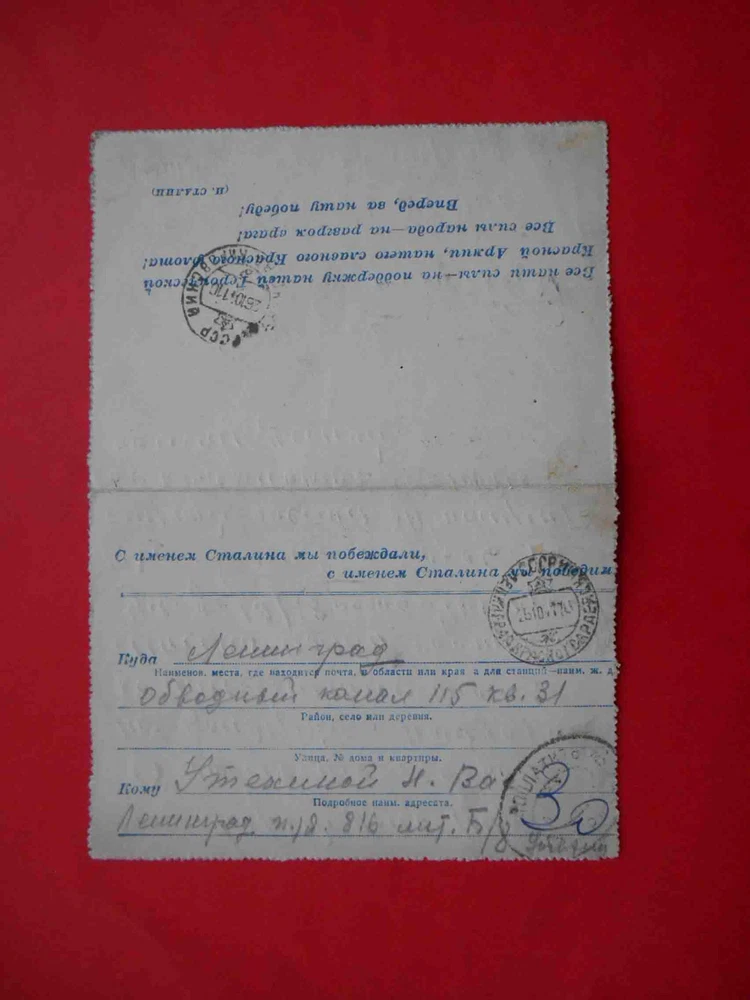 Все наши силы—на поддержку нашей Героической
Красной Армии, нашего славного Красного флота!
Все силы народа—на разгром врага!
Вперед, за нашу победу!
(И. СТАЛИН)
СССР
С именем Сталина мы побеждали,
с именем Сталина мы победим
Куда Ленинград
Наименов. места, где находится почта, а области или края а для станций—наим. ж. д.
Обводный канал 115 кв. 31
Район, село или деревня.
Улица, № дома и квартиры.
Кому Утехиной Н. Ва
Подробное наим. адресата.
Ленинград п./я. 816 лит. Б/
30